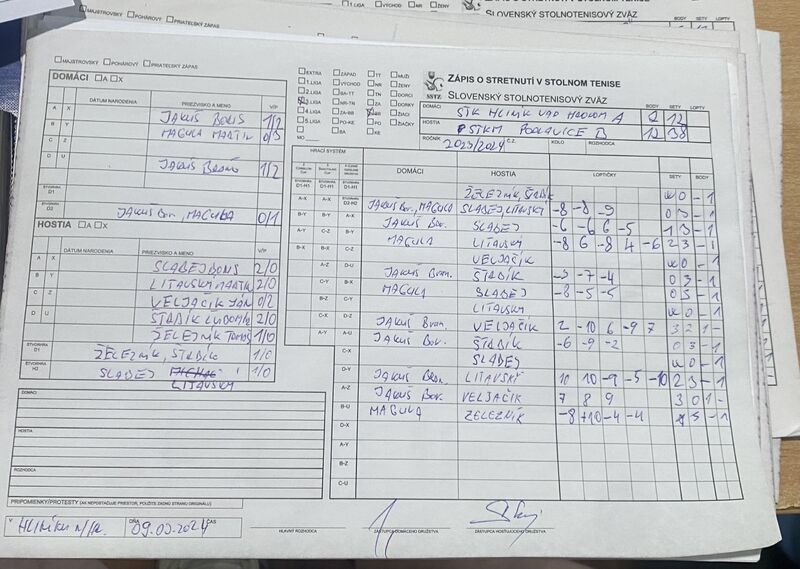 □MAJSTROVSKÝ □POHÁROVÝ □PRIATEĽSKÝ ZÁPAS
DOMÁCI □A □X
DÁTUM NARODENIA PRIEZVISKO A MENO V/P
A X JAKUŠ BORIS 1/2
B Y MAGULA MARTIN 0/3
C Z
D U JAKUŠ 1/2
ŠTVORHRA D1
ŠTVORHRA D2 JAKUŠ Bor., MAGULA 0/1
HOSTIA □A □X
DÁTUM NARODENIA PRIEZVISKO A MENO V/P
A X SLABEJ BORIS 2/0
B Y LITAVSKÝ MARTIN 2/0
C Z VELJAČIK JÁN 0/2
D U ŠTABÍK ĽUDOMÍR 2/0
ŽELEZNÍK TOMÁŠ 1/0
ŠTVORHRA D1 ŽELEZNÍK, ŠTABÍK 1/0
ŠTVORHRA SLABEJ 1/0
LITAVSKÝ
DOMÁCI
HOSTIA
ROZHODCA
PRIPOMIENKY/PROTESTY (AK NEPOSTAČUJE PRIESTOR, POUŽITE ZADNÚ STRANU ORIGINÁLU)
V HLINÍKU n/Hr. DŇA 09.03.2024 ČAS
HLAVNÝ ROZHODCA ZÁSTUPCA DOMÁCEHO DRUŽSTVA ZÁSTUPCA HOSŤUJÚCEHO DRUŽSTVA
□EXTRA □ZÁPAD □TT □MUŽI
□1.LIGA □VÝCHOD □NR □ŽENY
□2.LIGA □BA-TT □TN □DORCI
3.LIGA □NR-TN □ZA □DORKY
□4.LIGA □ZA-BB BB □ŽIACI
□5.LIGA □PO-KE □PO □ŽIAČKY
□MO □BA □KE
SSTZ
ZÁPIS O STRETNUTÍ V STOLNOM TENISE
SLOVENSKÝ STOLNOTENISOVÝ ZVÄZ
BODY SETY LOPTY
DOMÁCI STK HLINÍK NAD HRONOM A 2 12
HOSTIA STKM PODLAVICE B 12 38
ROČNÍK 2023/2024 Č.Z. KOLO ROZHODCA
HRACÍ SYSTÉM DOMÁCI HOSTIA LOPTIČKY SETY BODY
ŽELEZNÍK, ŠTABÍK WO - 1
JAKUŠ Bor., MAGULA SLABEJ, LITAVSKÝ -8 -8 -9 0 3 - 1
JAKUŠ Bor. SLABEJ -6 -6 6 -5 1 3 - 1
MAGULA LITAVSKÝ -8 6 -8 4 -6 2 3 - 1
VELJAČIK WO - 1
JAKUŠ Bran. ŠTABÍK -3 -7 -4 0 3 - 1
MAGULA SLABEJ -8 -5 -5 0 3 - 1
LITAVSKÝ WO - 1
JAKUŠ Bran. VELJAČIK 2 -10 6 -9 7 3 2 1 -
JAKUŠ Bor. ŠTABÍK -6 -9 -2 0 3 - 1
SLABEJ WO - 1
JAKUŠ Bran. LITAVSKÝ 10 10 -9 -5 -10 2 3 - 1
JAKUŠ Bor. VELJAČIK 7 8 9 3 0 1 -
MAGULA ŽELEZNÍK -8 +10 -4 -4 - 1